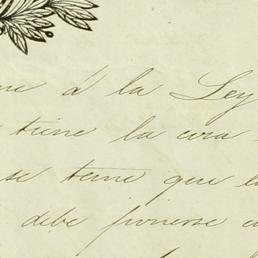 á la Ley
tiene la cosa
se teme que la
debe ponerse